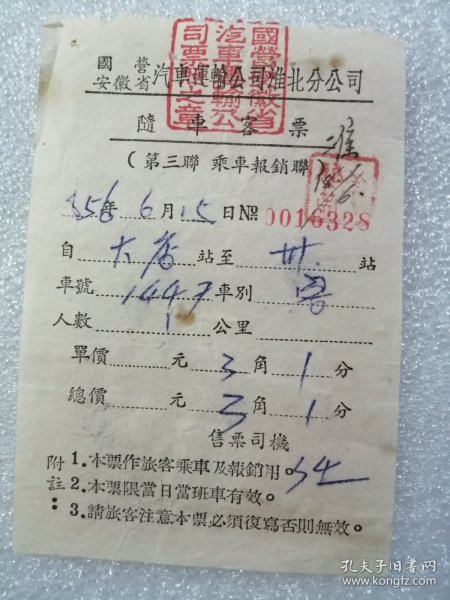 國營
安徽省汽車運輸公司淮北分公司
隨車客票
(第三聯 乘車報銷聯)
56年6月15日 № 0016328
自大店站至站
車號1447車別客
人數1公里
單價元3角1分
總價元3角1分
售票司機
附註:
1.本票作旅客乘車及報銷用。
2.本票限當日當班車有效。
3.請旅客注意本票必須復寫否則無效。
孔夫子旧书网
www.kongfz.com